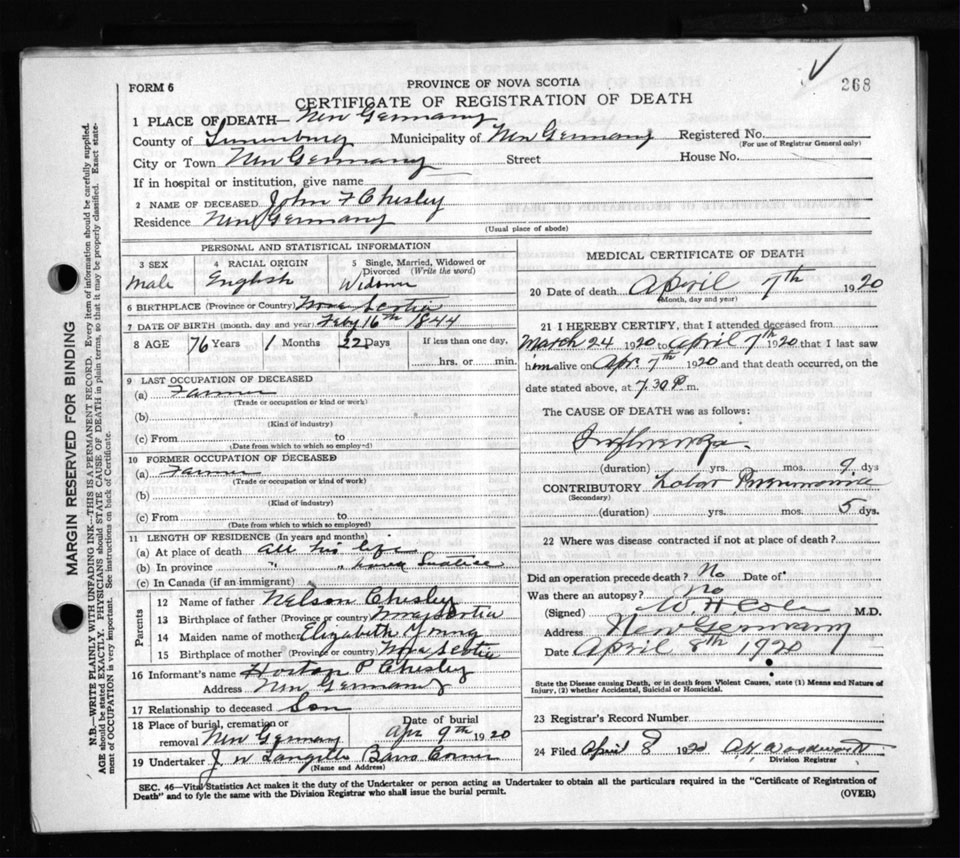 FORM 6
PROVINCE OF NOVA SCOTIA
268
CERTIFICATE OF REGISTRATION OF DEATH
1 PLACE OF DEATH— New Germany
County of Lunenburg Municipality of New Germany Registered No.
(For use of Registrar General only)
City or Town New Germany Street House No.
If in hospital or institution, give name
2 NAME OF DECEASED John F Chesley
Residence New Germany
(Usual place of abode)
PERSONAL AND STATISTICAL INFORMATION
3 SEX 4 RACIAL ORIGIN 5 Single, Married, Widowed or
Divorced (Write the word)
Male English Widower
6 BIRTHPLACE (Province or Country) Nova Scotia
7 DATE OF BIRTH (month, day and year) Feby 16th 1844
8 AGE 76 Years 1 Months 22 Days If less than one day,
hrs. or min.
9 LAST OCCUPATION OF DECEASED
(a) Farmer
(Trade or occupation or kind or work)
(b)
(Kind of industry)
(c) From to
(Date from which to which so employed)
10 FORMER OCCUPATION OF DECEASED
(a) Farmer
(Trade or occupation or kind of work)
(b)
(Kind of industry)
(c) From to
(Date from which to which so employed)
11 LENGTH OF RESIDENCE (In years and months)
(a) At place of death all his life
(b) In province " " Nova Scotia
(c) In Canada (if an immigrant)
Parents
12 Name of father Nelson Chesley
13 Birthplace of father (Province or country) Nova Scotia
14 Maiden name of mother Elizabeth Young
15 Birthplace of mother (Province or country) Nova Scotia
16 Informant's name Horton P Chesley
Address New Germany
17 Relationship to deceased Son
18 Place of burial, cremation or Date of burial
removal New Germany Apr 9th 1920
19 Undertaker J. W Langille Barss Corner
(Name and Address)
MEDICAL CERTIFICATE OF DEATH
20 Date of death April 7th 1920
(Month, day and year)
21 I HEREBY CERTIFY, that I attended deceased from
March 24 1920 to April 7th 1920 that I last saw
him alive on Apr. 7th 1920 and that death occurred, on the
date stated above, at 7.30 P. m.
The CAUSE OF DEATH was as follows:
Influenza.
(duration) yrs. mos. 9 dys
CONTRIBUTORY Lobar Pneumonia
(Secondary)
(duration) yrs. mos. 5 dys.
22 Where was disease contracted if not at place of death?
Did an operation precede death? No Date of
Was there an autopsy? No
(Signed) W. H. Cole M.D.
Address New Germany
Date April 8th 1920
State the Disease causing Death, or in death from Violent Causes, state (1) Means and Nature of
Injury, (2) whether Accidental, Suicidal or Homicidal.
23 Registrar's Record Number
24 Filed April 8 1920 A. K. Woodworth
Division Registrar
SEC. 46—Vital Statistics Act makes it the duty of the Undertaker or person acting as Undertaker to obtain all the particulars required in the "Certificate of Registration of
Death" and to fyle the same with the Division Registrar who shall issue the burial permit.
(OVER)
MARGIN RESERVED FOR BINDING
N.B.—WRITE PLAINLY WITH UNFADING INK—THIS IS A PERMANENT RECORD. Every item of information should be carefully supplied.
AGE should be stated EXACTLY. PHYSICIANS should STATE CAUSE OF DEATH in plain terms, so that it may be properly classified. Exact state-
ment of OCCUPATION is very important. See instructions on back of Certificate.